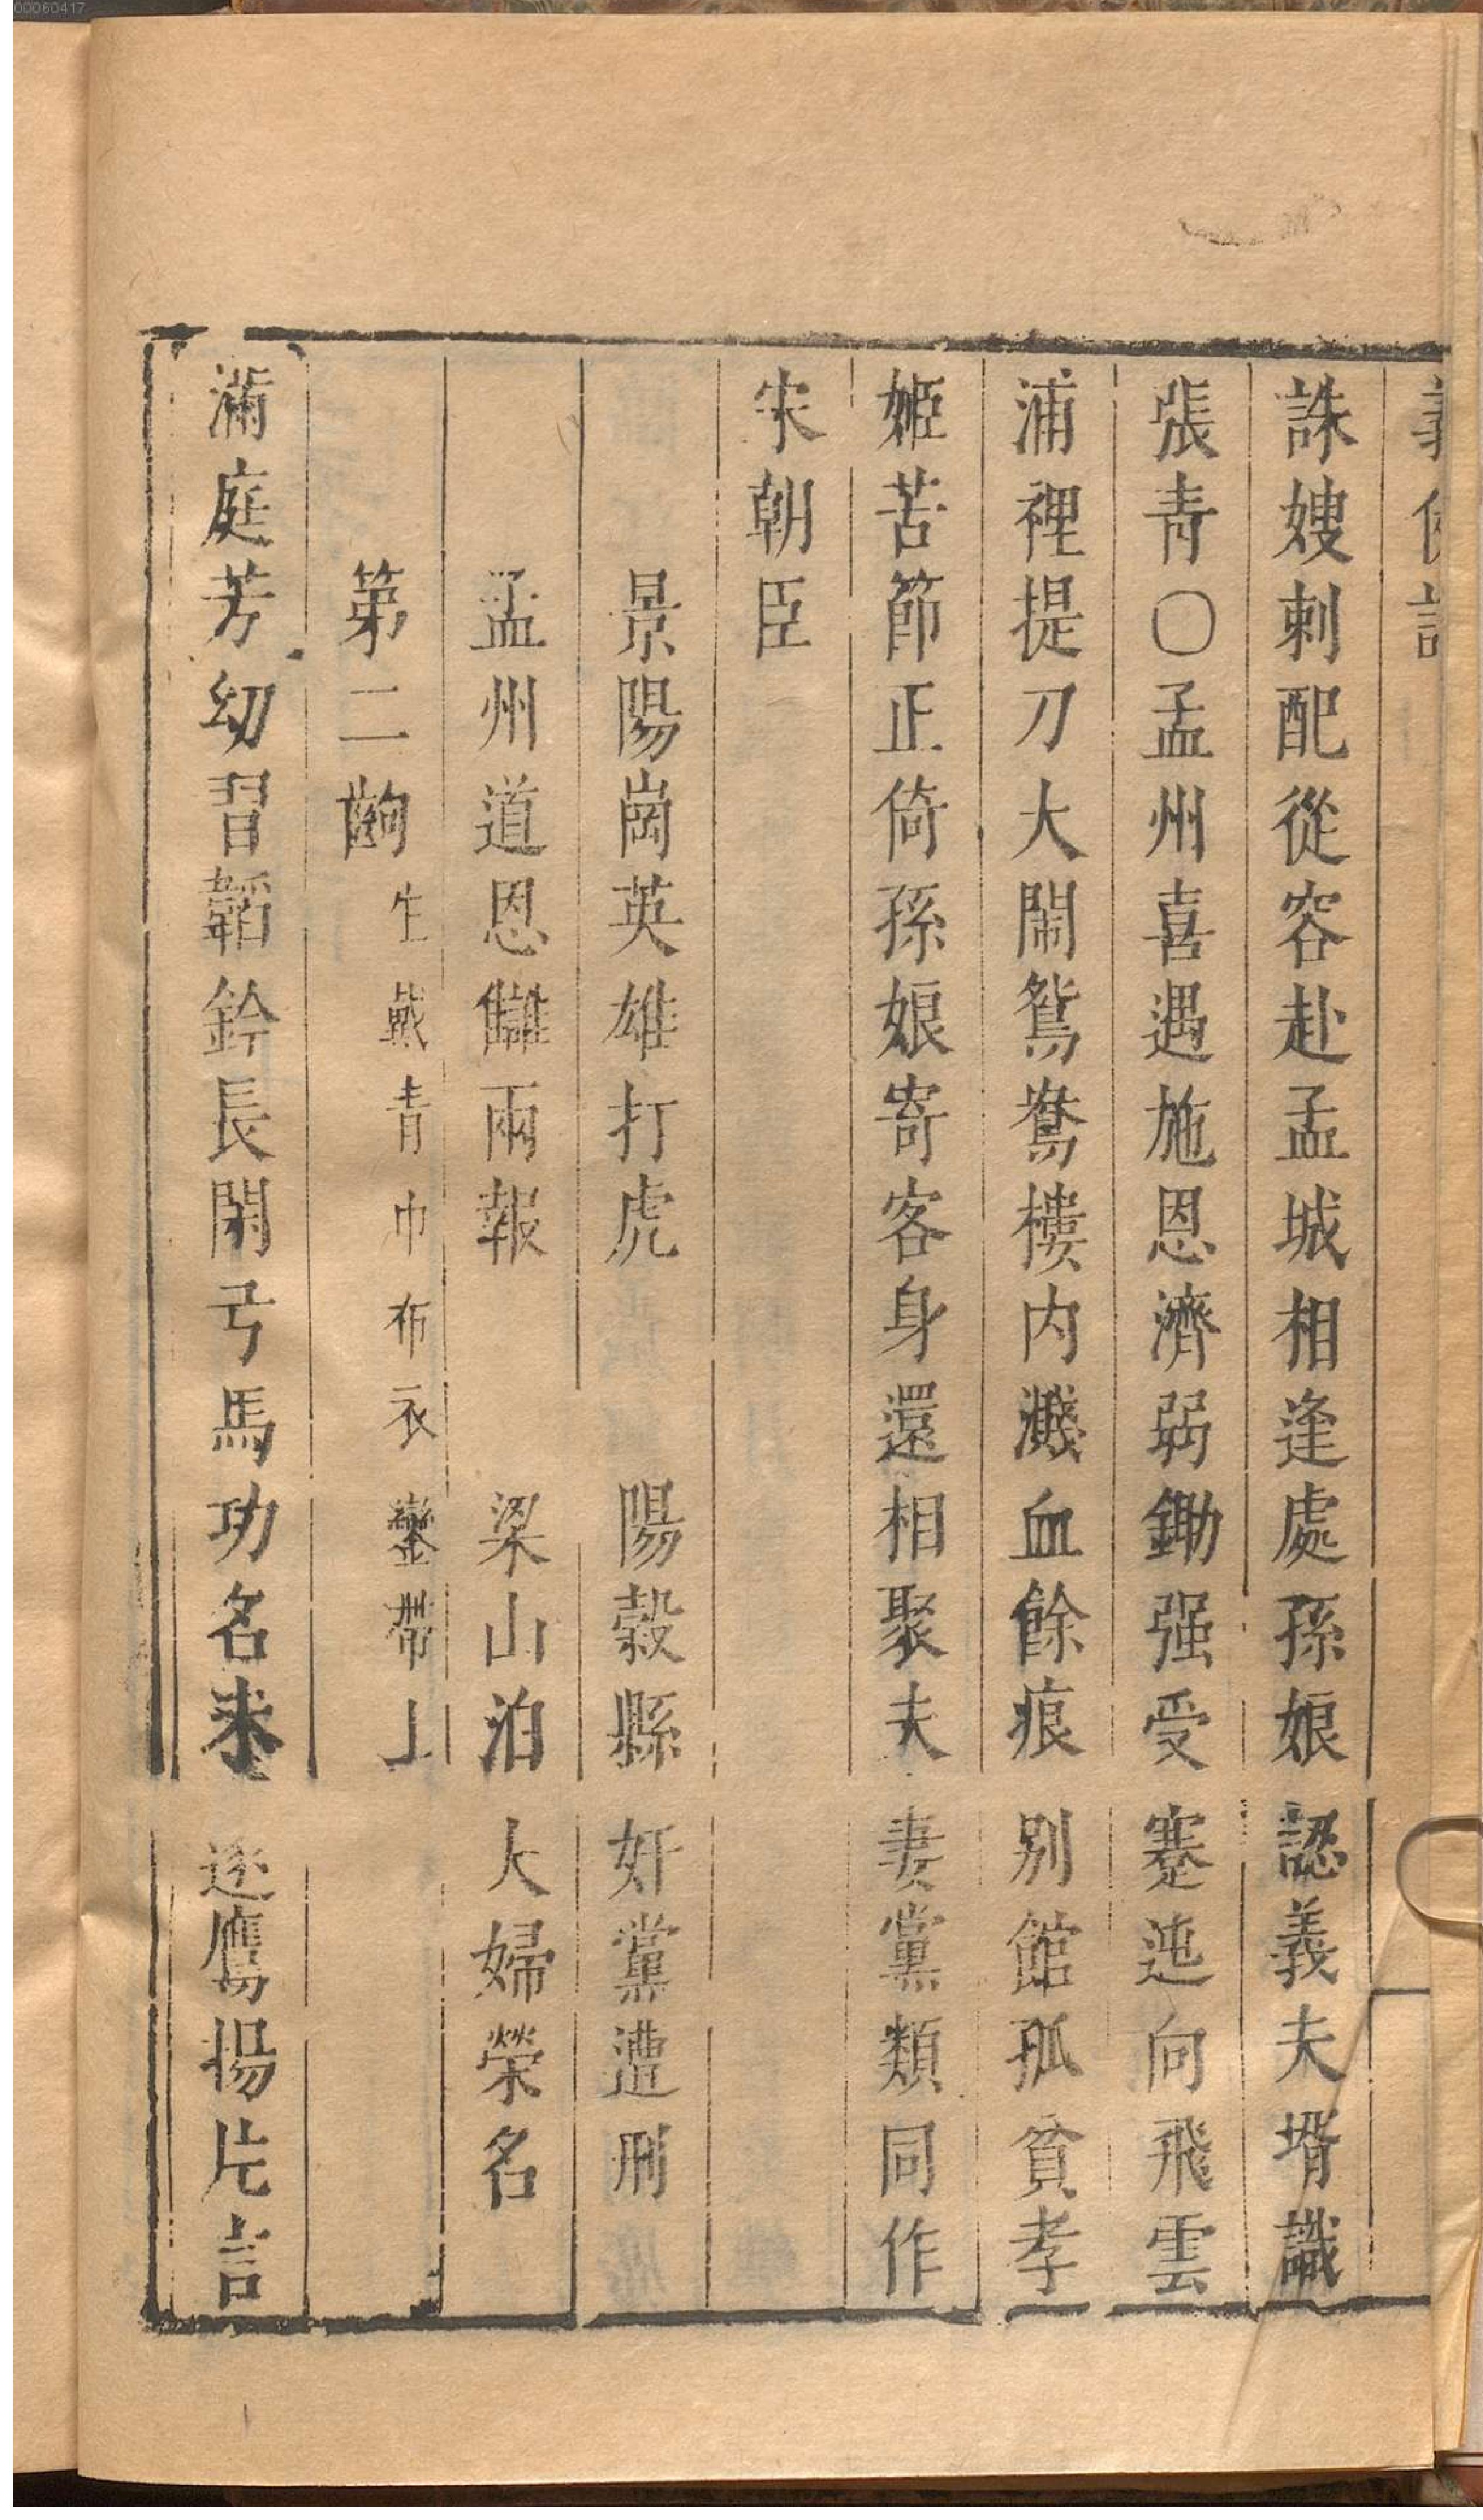 00060417
誅嫂刺配從容赴孟城相逢處孫娘認義夫壻識
張青〇孟州喜遇施恩濟弱鋤强受蹇迍向飛雲
浦裡提刀大鬧鴛鴦樓内濺血餘痕别館孤貧孝
姬苦節正倚孫娘寄客身還相聚夫妻黨類同作
宋朝臣
景陽崗英雄打虎 陽穀縣奸黨遭刑
孟州道恩讎兩報 梁山泊夫婦榮名
第二齣 生戴青巾布衣鑾帶上
滿庭芳幼習韜鈐長閑弓馬功名未遂鷹揚片言